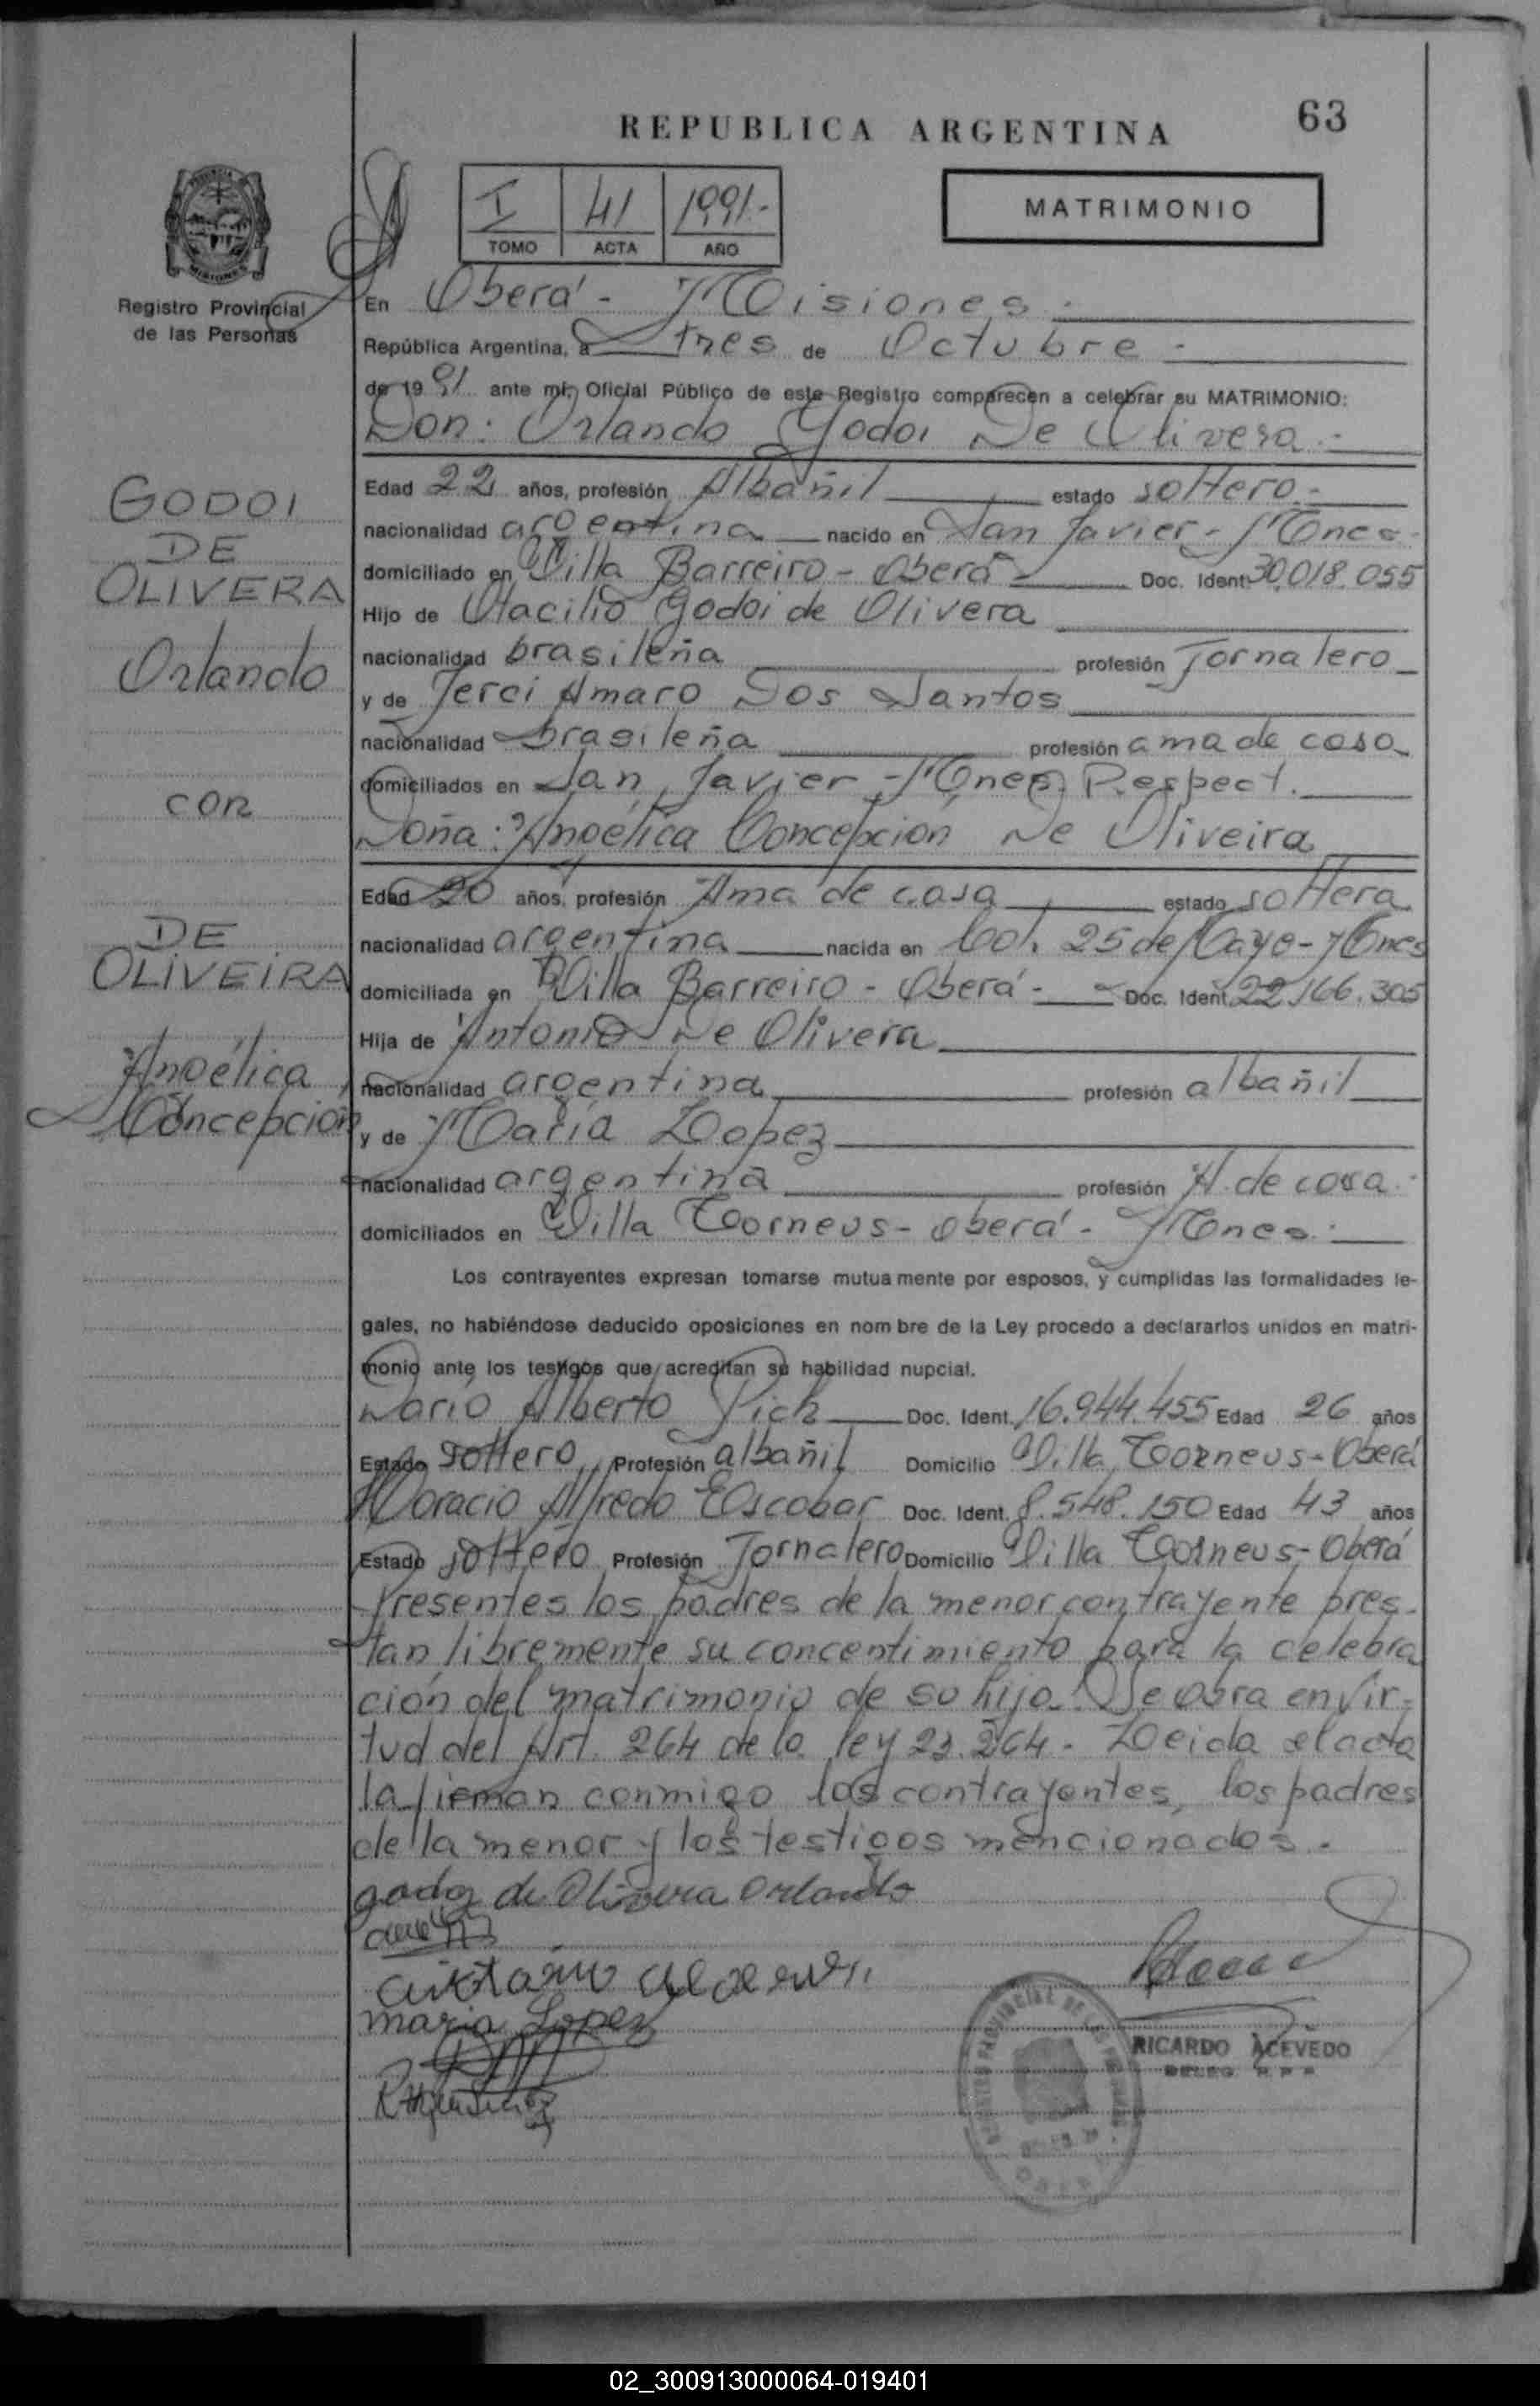 63
REPUBLICA ARGENTINA
I 41 1991.-
TOMO ACTA AÑO
MATRIMONIO
Registro Provincial
de las Personas
En Oberá - Misiones.-
República Argentina, a tres de Octubre.-
de 19 91 ante mi, Oficial Público de este Registro comparecen a celebrar su MATRIMONIO:
Don: Orlando Godoi De Olivera.-
Edad 22 años, profesión Albañil estado soltero.-
nacionalidad argentina nacido en San Javier - Mnes.-
domiciliado en Villa Barreiro - Oberá - Doc. Ident. 30.018.055
Hijo de Otacilio Godoi de Olivera
nacionalidad brasileña profesión Jornalero
y de Jerci Amaro Dos Santos
nacionalidad brasileña profesión ama de casa
domiciliados en San Javier - Mnes. Respect.
Doña: Angélica Concepcion De Oliveira
Edad 20 años, profesión Ama de casa estado soltera
nacionalidad argentina nacida en Col. 25 de Mayo - Mnes
domiciliada en Villa Barreiro - Oberá - Doc. Ident. 22.166.305
Hija de Antonio De Olivera
nacionalidad argentina profesión albañil
y de Maria Lopez
nacionalidad argentina profesión A. de casa.-
domiciliados en Villa Torneus - Oberá - Mnes.
Los contrayentes expresan tomarse mutua mente por esposos, y cumplidas las formalidades le-
gales, no habiéndose deducido oposiciones en nom bre de la Ley procedo a declararlos unidos en matri-
monio ante los testigos que acreditan su habilidad nupcial.
Dario Alberto Pich Doc. Ident. 16.944.455 Edad 26 años
Estado soltero Profesión albañil Domicilio Villa Torneus - Oberá
Horacio Alfredo Escobar Doc. Ident. 8.548.150 Edad 43 años
Estado soltero Profesión Jornalero Domicilio Villa Torneus - Oberá
Presentes los padres de la menor contrayente pres-
tan libremente su concentimiento para la celebra
ción del matrimonio de su hija. Se obra en vir-
tud del Art. 264 de la ley 23.264.- Leida el acta
la firman conmigo los contrayentes, los padres
de la menor y los testigos mencionados.-
godoy de Olivera Orlando
maria Lopez
RICARDO ACEVEDO
DELEG. R P P
GODOI
DE
OLIVERA
Orlando
con
DE
OLIVEIRA
Angélica
Concepción
02_300913000064-019401